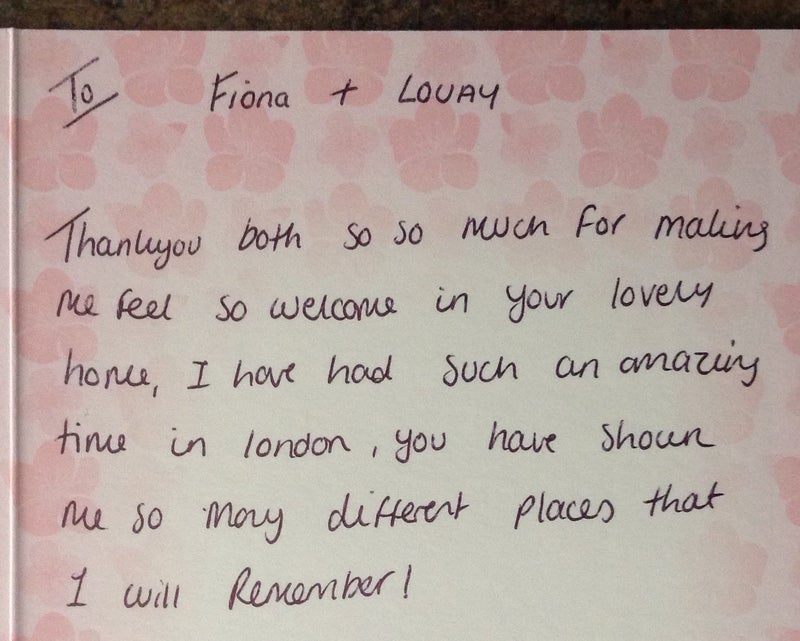 To Fiona + LOUAY
Thankyou both so so much for making
me feel so welcome in your lovely
home, I have had such an amazing
time in london, you have shown
me so many different places that
I will Remember!